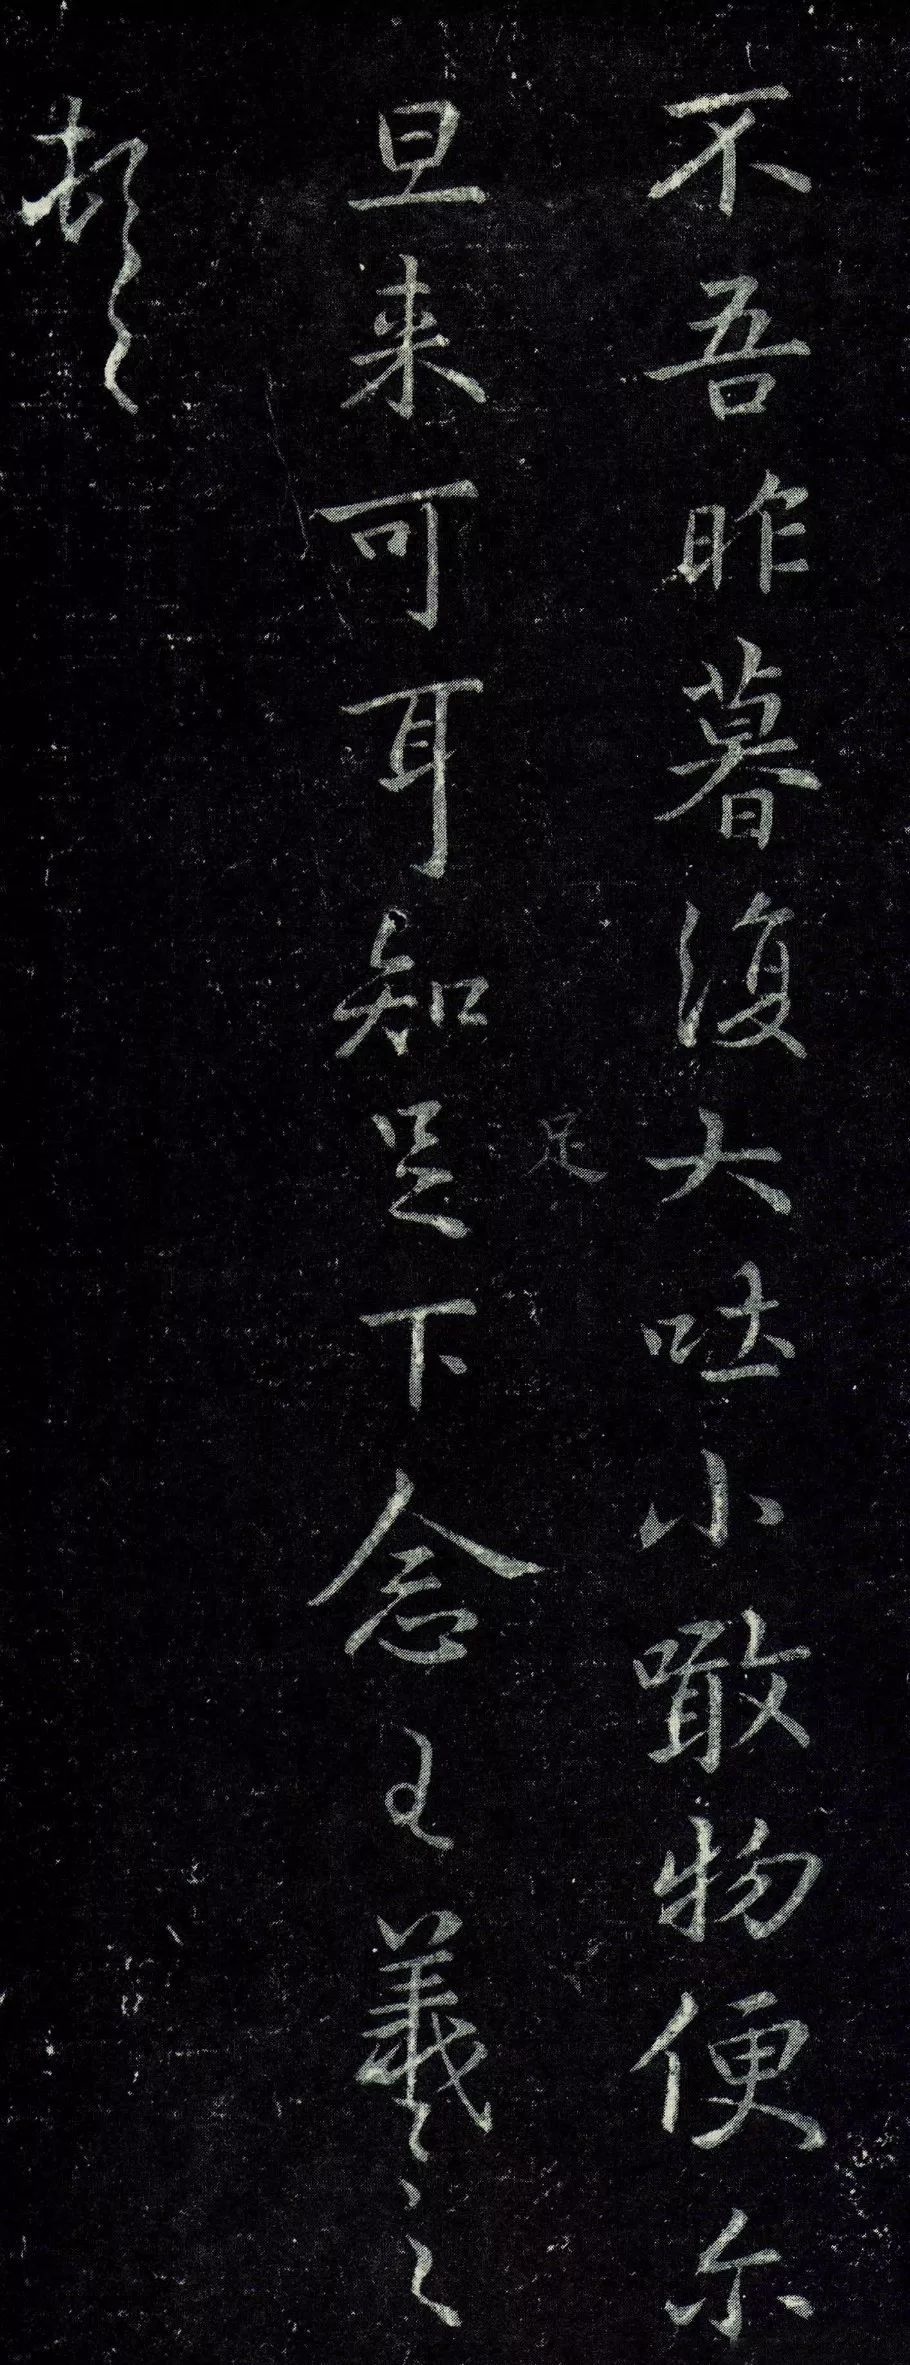 不吾昨暮復大吐小噉物便尔
旦来可耳知足下念王羲之
足
頓首